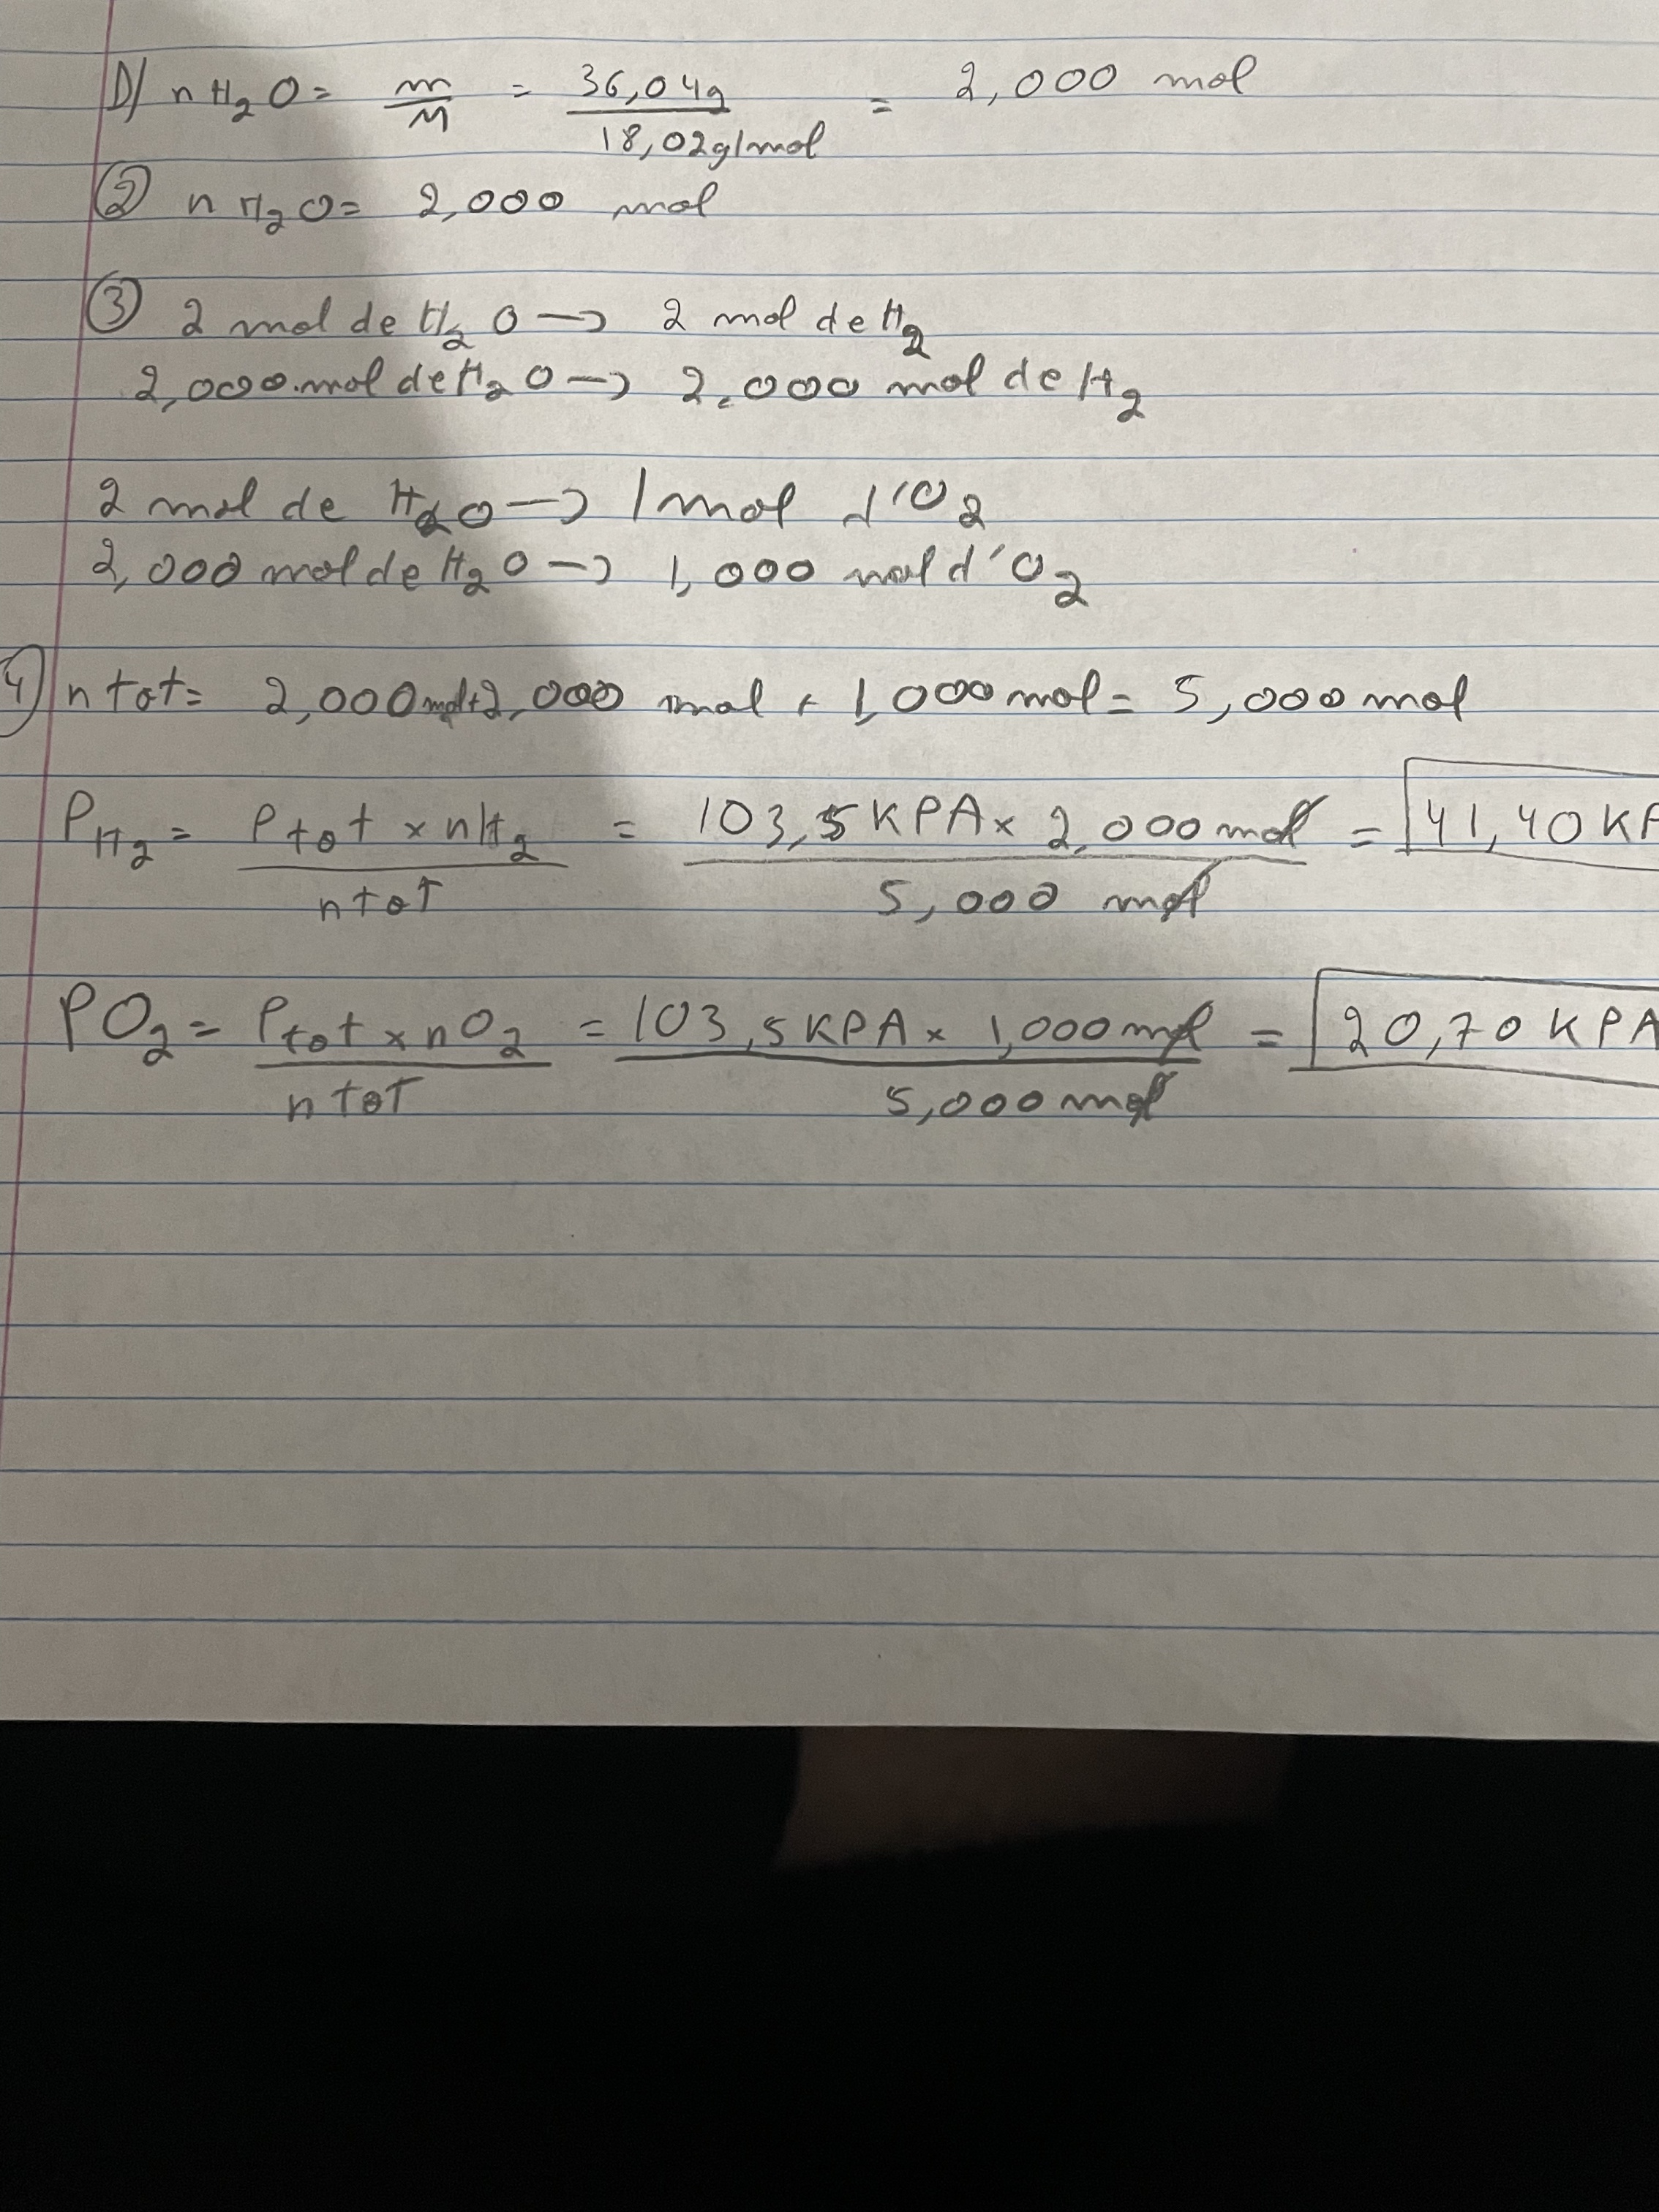 D/ n H₂O = m/M = 36,04g/18,02g/mol = 2,000 mol
② n H₂O = 2,000 mol
③ 2 mol de H₂O → 2 mol de H₂
2,000 mol de H₂O → 2,000 mol de H₂
2 mol de H₂O → 1 mol d'O₂
2,000 mol de H₂O → 1,000 mol d'O₂
4) n tot = 2,000 mol + 2,000 mol + 1,000 mol = 5,000 mol
P H₂ = P tot x n H₂ / n tot = 103,5 KPA x 2,000 mol / 5,000 mol = 41,40 KP
P O₂ = P tot x n O₂ / n tot = 103,5 KPA x 1,000 mol / 5,000 mol = 20,70 KPA